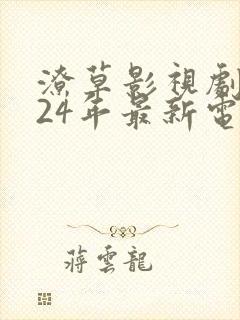 潦草影視劇
24年最新電
蔣雲龍